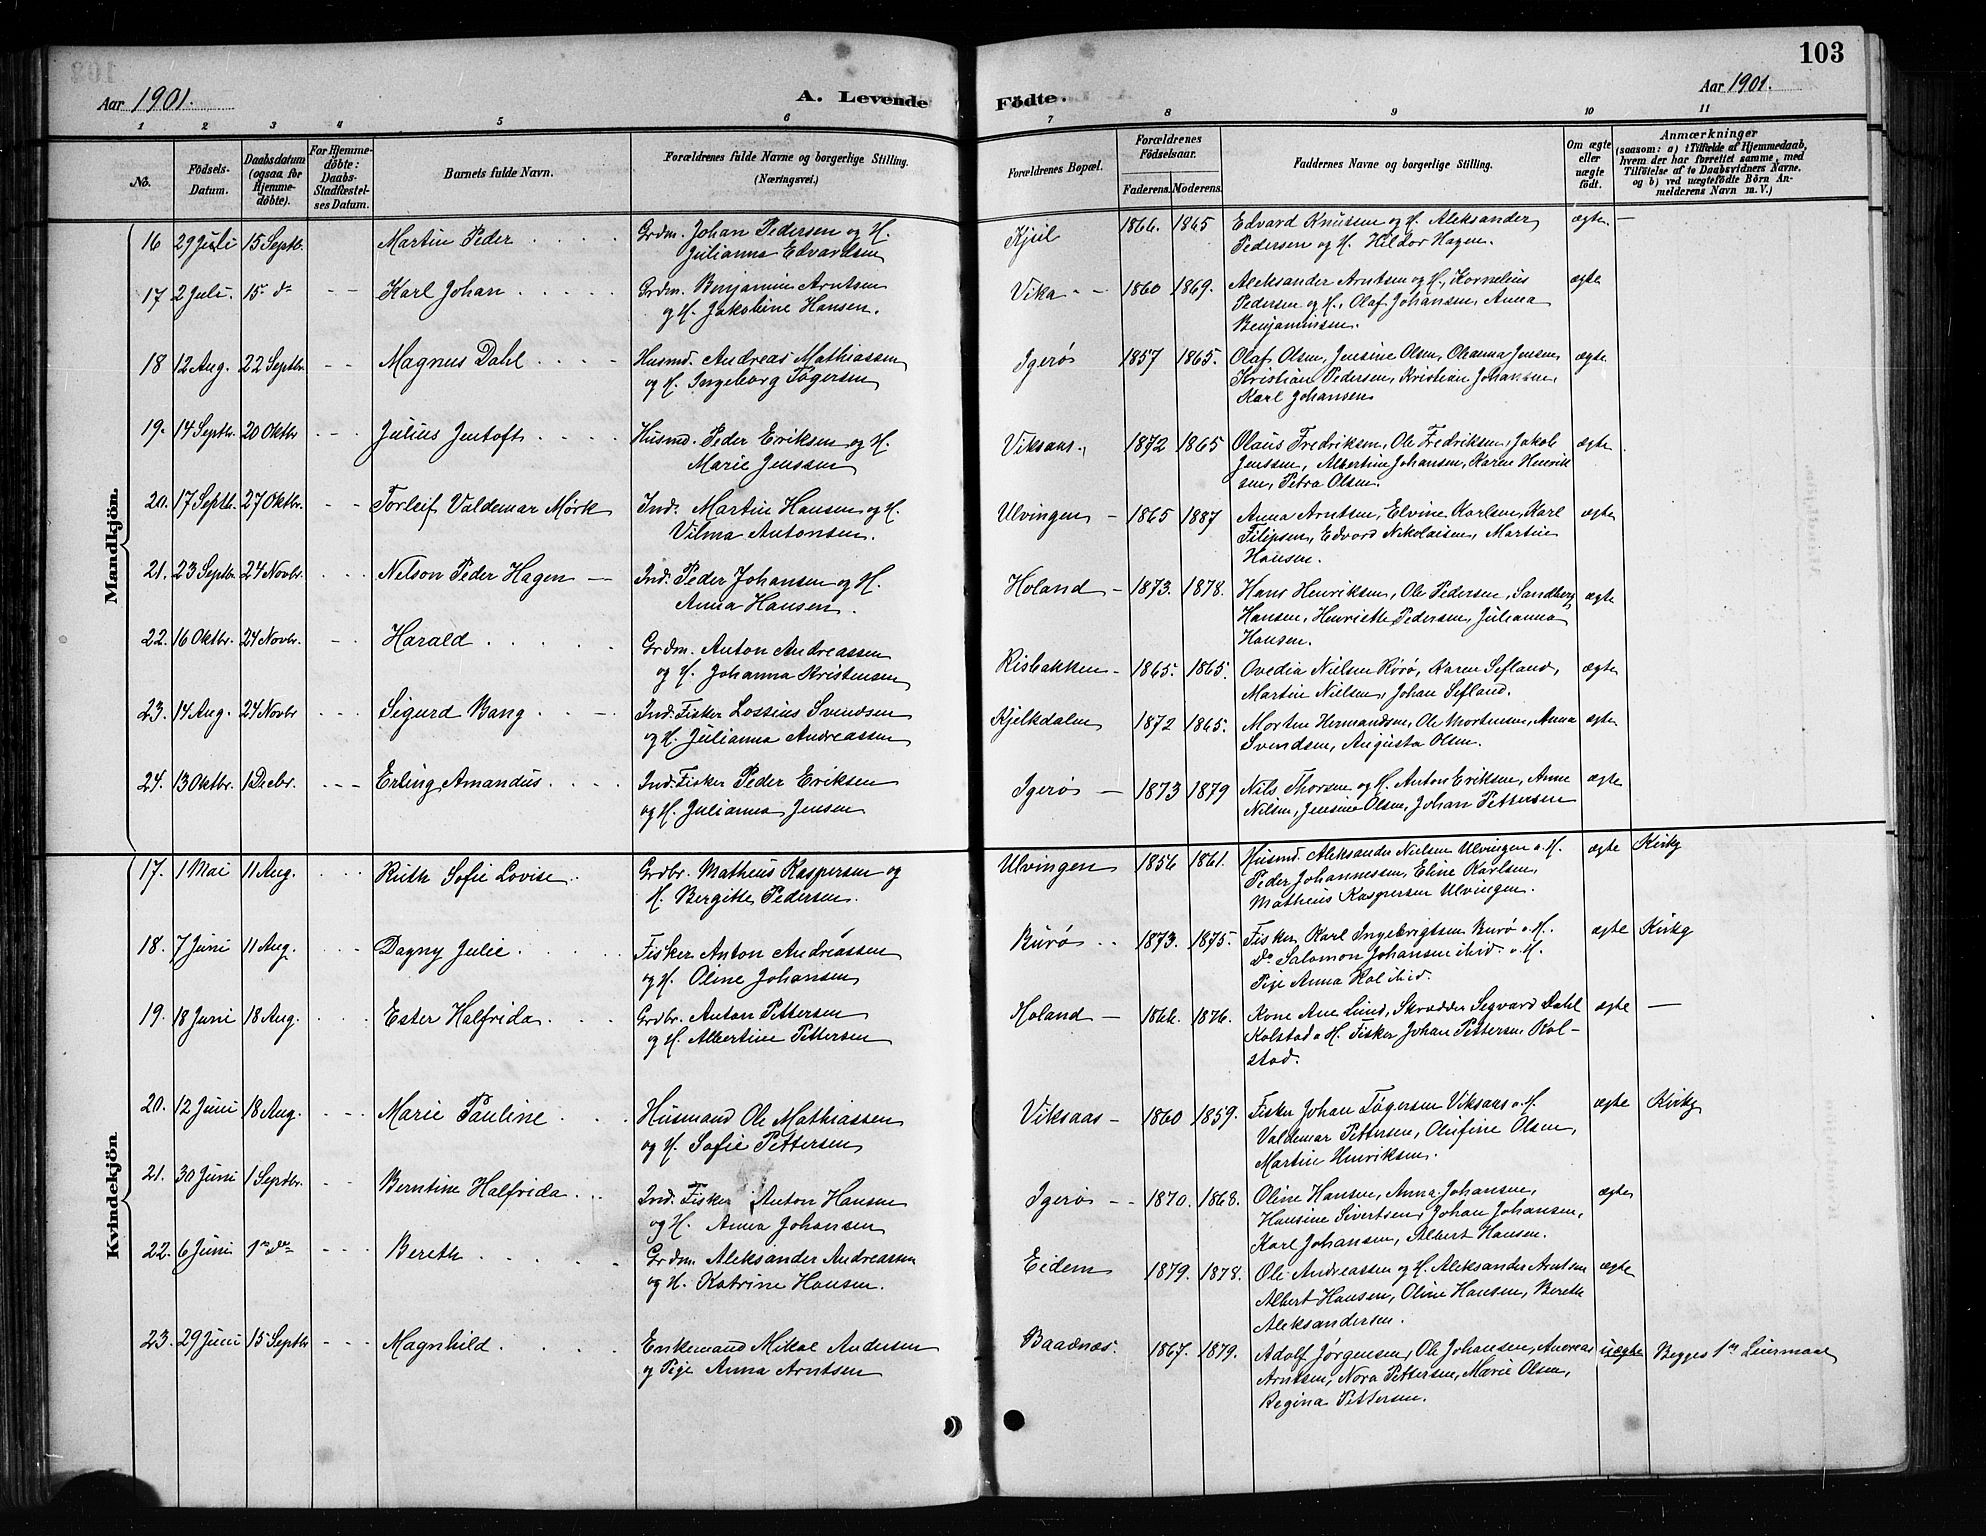 103
Aar 1901.
A. Levende
Födte.
Aar 1901.
1 2 3 4 5 6 7 8 9 10 11
No.
Födsels-Datum.
Daabsdatum (ogsaa for Hjemme-döbte).
For Hjemme-döbte: Daabs-Stadfæstel-ses Datum.
Barnets fulde Navn.
Forældrenes fulde Navne og borgerlige Stilling. (Næringsvei.)
Forældrenes Bopæl.
Forældrenes Födselsaar.
Faderens. Moderens.
Faddernes Navne og borgerlige Stilling.
Om ægte eller uægte födt.
Anmærkninger
(saasom: a) i Tilfælde af Hjemmedaab,
hvem der har forrettet samme, med
Tilföielse af to Daabsvidners Navne,
og b) ved uægtefödte Börn An-
melderens Navn m. V.)
Mandkjön.
16 29 Juli 15 Septbr. Martin Peder Grdm. Johan Pedersen og H. Kjul 1866. 1865 Edvard Knutsen og H. Aleksander ægte —
Julianna Edvardsen Pedersen og H. Hildor Hagen.
17 2 Juli. 15 do - - Karl Johan Grdm. Benjamin Arntsen Vika - - 1860 1869. Aleksander Arntsen og H., Kornelius ægte
og H. Jakobine Hansen. Pedersen og H., Olaf Johansen, Anna
Benjaminsen.
18 12 Aug. 22 Septbr. - - Magnus Dahl Husmd. Andreas Mathiassen Igerø 1857 1865. Olaf Olsen, Jensine Olsen, Oleanna Jensen, ægte
og H. Ingeborg Tøgersen Kristian Pedersen, Kristian Johansen,
Karl Johansen
19. 14 Septbr. 20 Oktbr - - - Julius Jentoft Husmd. Peder Eriksen og H. Viksaas. 1872 1865 Olaus Fredriksen, Ole Fredriksen, Jakob ægte
Marie Jenssen Jenssen, Albertine Johansen, Karen Henrik
sen, Petra Olsen.
20. 17 Septbr. 27 Oktbr. - - Torleif Valdemar Mørk Ind. Martin Hansen og H. Ulvingen - 1865 1887 Anna Arntsen, Elvine Karlsen, Karl ægte
Vilma Antonsen. Filipsen, Edvard Nikolaisen, Martin
Hansen.
21. 23 Septbr. 24 Novbr. - - - Nelson Peder Hagen — Ind. Peder Johansen og H. Holand - 1873. 1878. Hans Henriksen, Ole Pedersen, Sandberg ægte
Anna Hansen. Hansen, Henriette Pedersen, Julianna
Hansen.
22. 16 Oktbr. 24 Novbr. - - Harald Grdm. Anton Andreassen Risbakken - 1865. 1865. Ovedia Nielsen Rørø, Karen Sefland, ægte
og H. Johanna Kristensen Martin Nielsen, Johan Sefland.
23. 14 Aug. 24 Novbr - - - Sigurd Bang Ind. Fisker Lossius Svendsen Kjelkdalen 1872 1865. Morten Hermandsen, Ole Mortensen, Anna ægte
og H. Julianna Andreassen Svendsen, Augusta Olsen.
24. 13 Oktbr. 1 Decbr. - - - Erling Amandus Ind. Fisker Peder Eriksen Igerø - 1873 1879 Nils Thorsen og H. Anton Eriksen, Anne ægte
og H. Julianna Jensen Nilsen, Jensine Olsen, Johan Pettersen
Kvindekjön
17. 1 Mai 11 Aug. - - - Ruth Sofie Lovise Grdbr. Matheus Kaspersen og Ulvingen 1856 1861. Husmd. Aleksander Nielsen Ulvingen o. H. ægte Kirkg
H. Bergitte Pedersen. Peder Johannessen, Eline Karlsen,
Matheus Kaspersen Ulvingen.
18. 7 Juni 11 Aug. - - - Dagny Julie Fisker Anton Andreassen Burø - - 1873. 1875. Fisker Karl Ingebrigtsen Burø o. H. ægte Kirkg
og H. Oline Johansen Do Salomon Johansen ibid. o. H.
Pige Anna Kol ibid.
19. 18 Juni 18 Aug. - - - Ester Halfrida Grdbr. Anton Pettersen Holand - 1866. 1876. Kone Ane Lund, Skrædder Segvard Dahl ægte —
og H. Albertine Pettersen Kolstad o H. Fisker Johan Pettersen Kol-
stad.
20. 12 Juni 18 Aug. - - - Marie Pauline Husmand Ole Mathiassen Viksaas - 1860 1859. Fisker Johan Tøgersen Viksaas o H. ægte Kirkg
og H. Sofie Pettersen Valdemar Pettersen, Olufine Olsen,
Martin Henriksen.
21. 30 Juni 1 Septbr. - - Berntine Halfrida Ind. Fisker Anton Hansen Igerø - - 1870. 1868. Oline Hansen, Anna Johansen, ægte
og H. Anna Johansen Hansine Sivertsen, Johan Johansen,
Karl Johansen, Albert Hansen.
22. 6 Juni 1 do - - - Bereth Grdm. Aleksander Andreassen Eidem 1879. 1878. Ole Andreassen og H. Aleksander Arntsen ægte
og H. Katrine Hansen. Albert Hansen, Oline Hansen, Bereth
Aleksandersen.
23. 29 Juni 15 Septbr - - - Magnhild Enkemand Mikal Andersen Baadnæs 1867. 1879. Adolf Jørgensen, Ole Johansen, Andreas uægte Begges 1ste Leiermaal
og Pige Anna Arntsen Arntsen, Nora Pettersen, Marie Olsen,
Regina Pettersen.